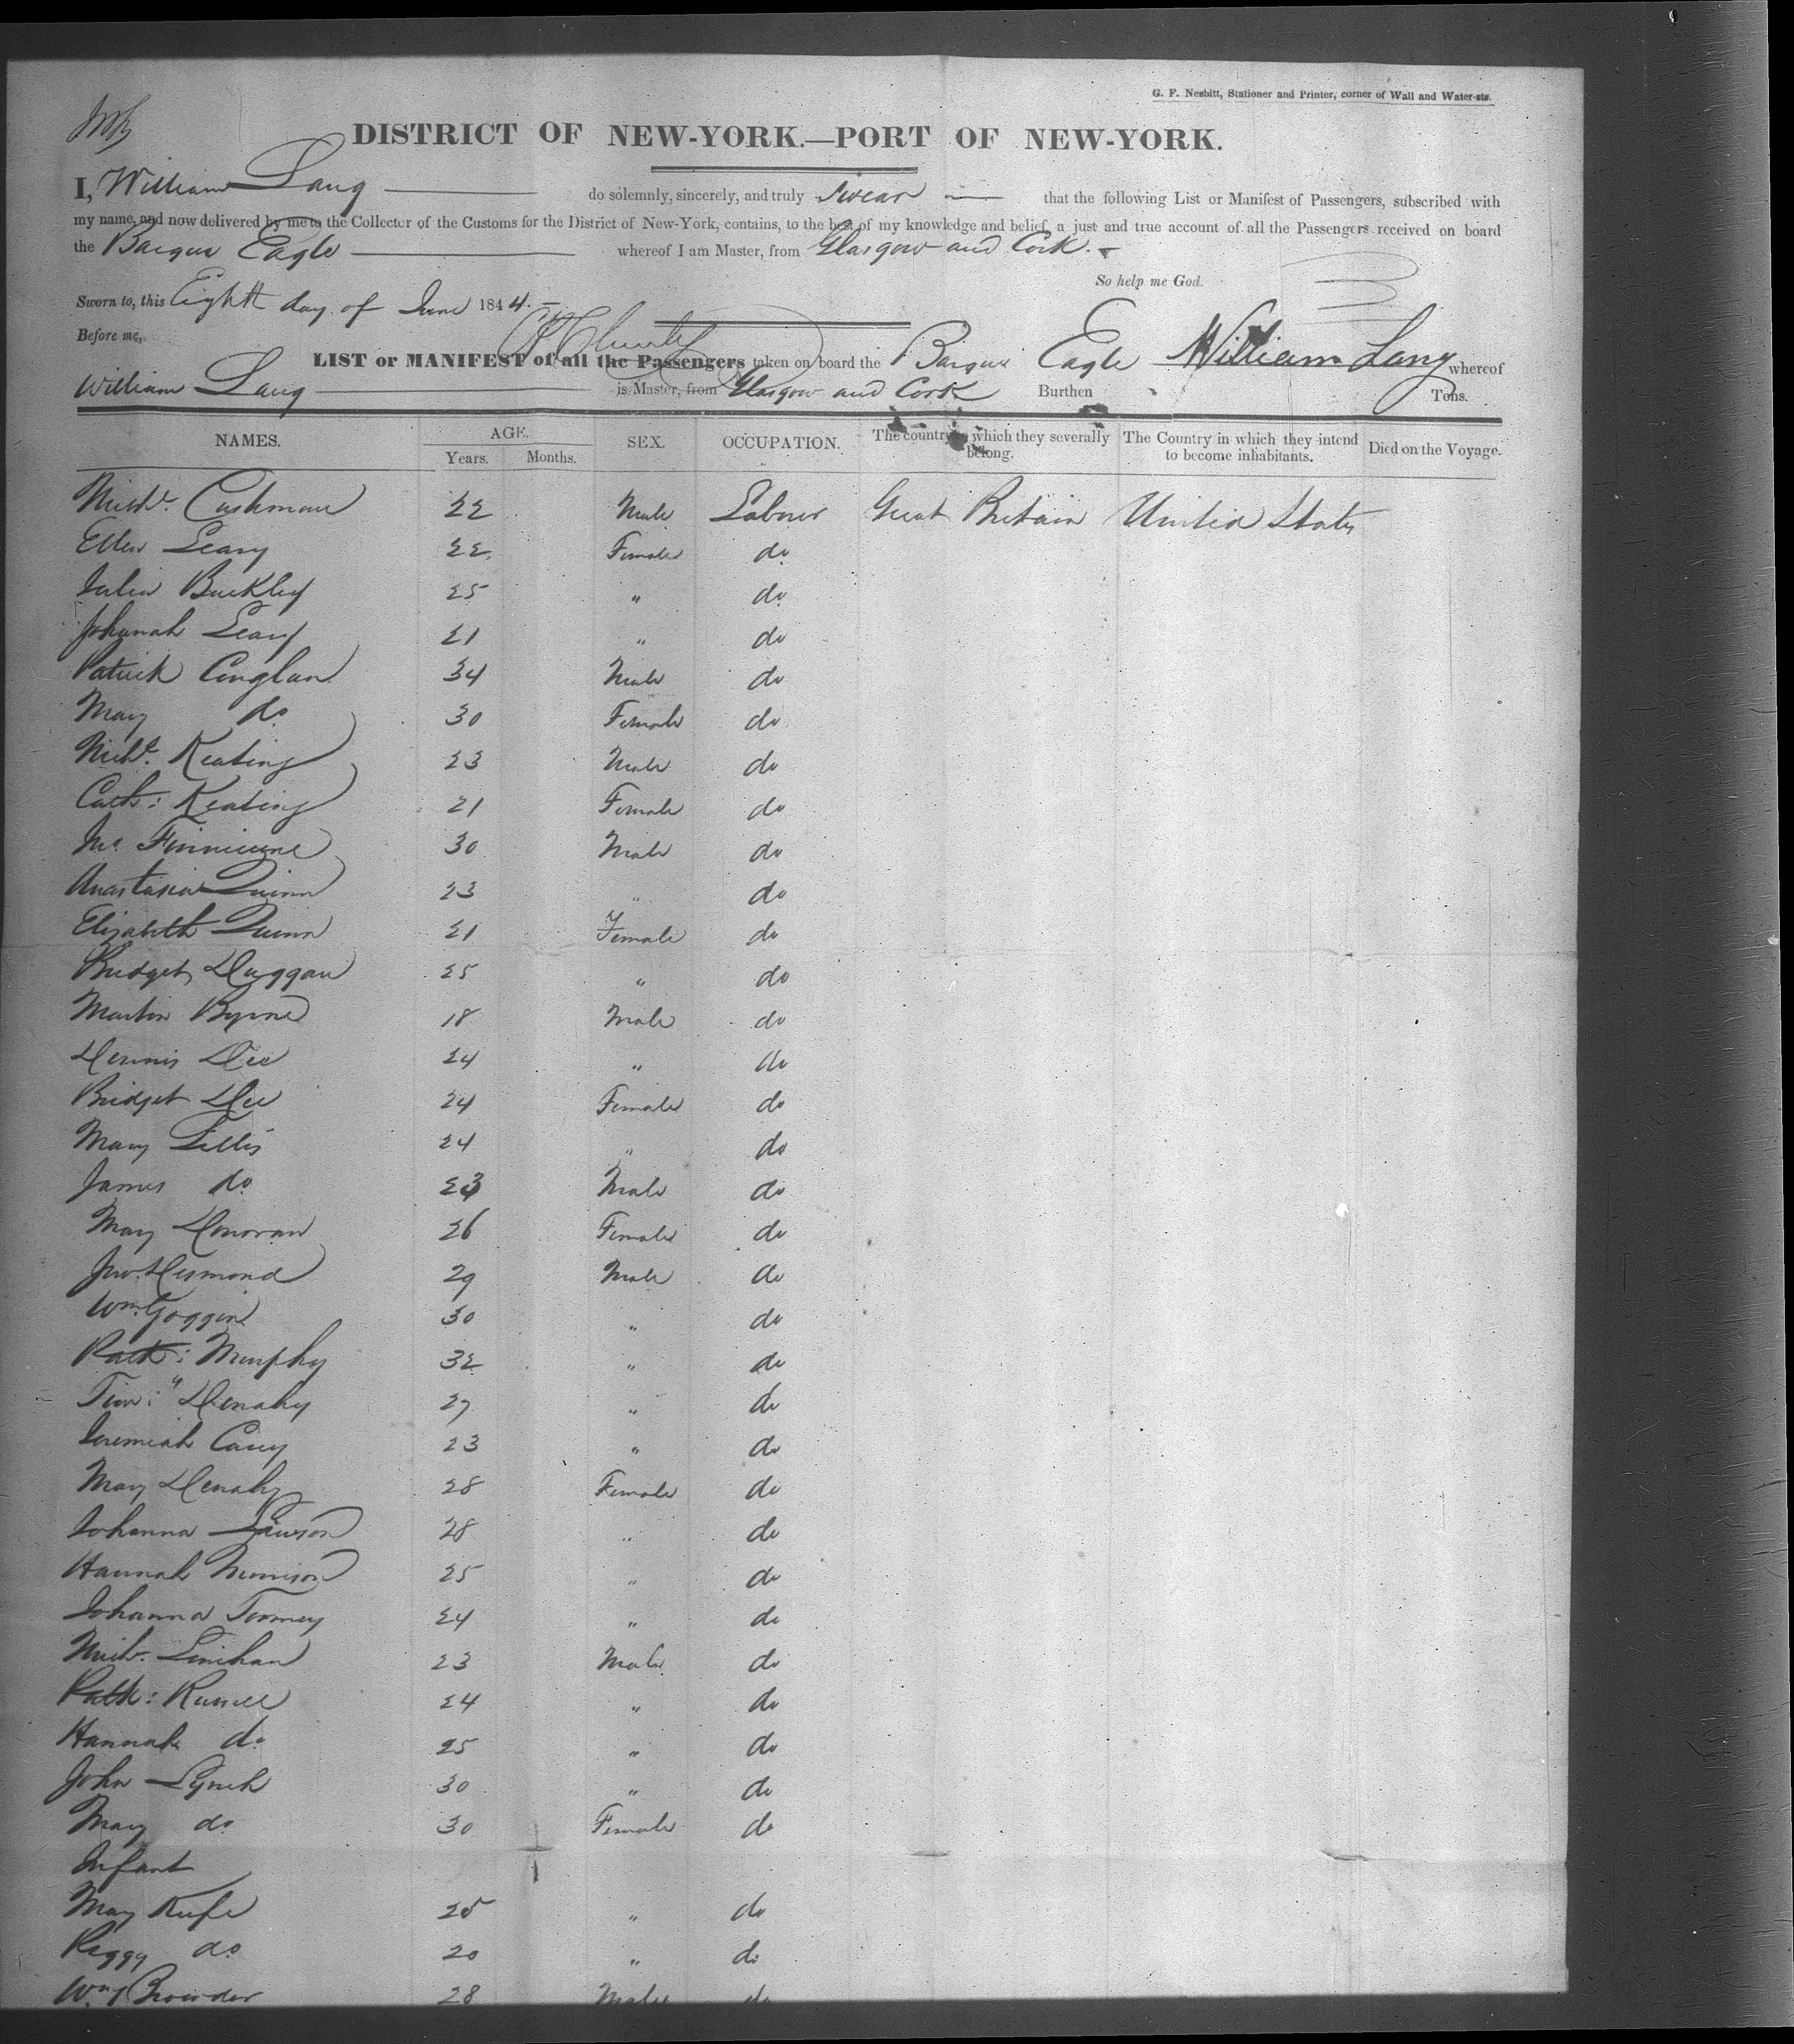 G. F. Nesbitt, Stationer and Printer, corner of Wall and Water-sts.
DISTRICT OF NEW-YORK.—PORT OF NEW-YORK.
I, William Lang do solemnly, sincerely, and truly swear that the following List or Manifest of Passengers, subscribed with
my name, and now delivered by me to the Collector of the Customs for the District of New-York, contains, to the best of my knowledge and belief, a just and true account of all the Passengers received on board
the Barque Eagle whereof I am Master, from Glasgow and Cork.
So help me God.
Sworn to, this Eighth day of June 1844.
Before me,
William Lang
LIST or MANIFEST of all the Passengers taken on board the Barque Eagle whereof
William Lang is Master, from Glasgow and Cork Burthen Tons.
NAMES. AGE. SEX. OCCUPATION. The country to which they severally belong. The Country in which they intend to become inhabitants. Died on the Voyage.
Years. Months.
Michl. Cushman 22 Male Labourer Great Britain United States
Ellen Leary 22 Female do
Julia Buckley 25 " do
Johanah Leary 21 " do
Patrick Conglan 34 Male do
Mary do 30 Female do
Michl. Keating 23 Male do
Cath: Keating 21 Female do
30 Male do
Anastasia Quinn 23 " do
Elizabeth Quinn 21 Female do
Bridget Duggan 25 " do
Martin Byrne 18 Male do
Dennis Dee 24 " do
Bridget Dee 24 Female do
Mary Lillis 24 " do
James do 23 Male do
Mary Donovan 26 Female do
Jno. Desmond 29 Male do
Wm. Goggin 30 " do
Patk: Murphy 32 " do
Tim: Denahy 27 " do
Jeremiah Carey 23 " do
Mary Denahy 28 Female do
Johanna 28 " do
Hannah 25 " do
Johanna Toomey 24 " do
Michl. Linihan 23 Male do
Patk: Russell 24 " do
Hannah do 25 " do
John Lynch 30 " do
Mary do 30 Female do
Infant
Mary Keefe 25 " do
Peggy do 20 " do
Wm. Browder 28 Male do